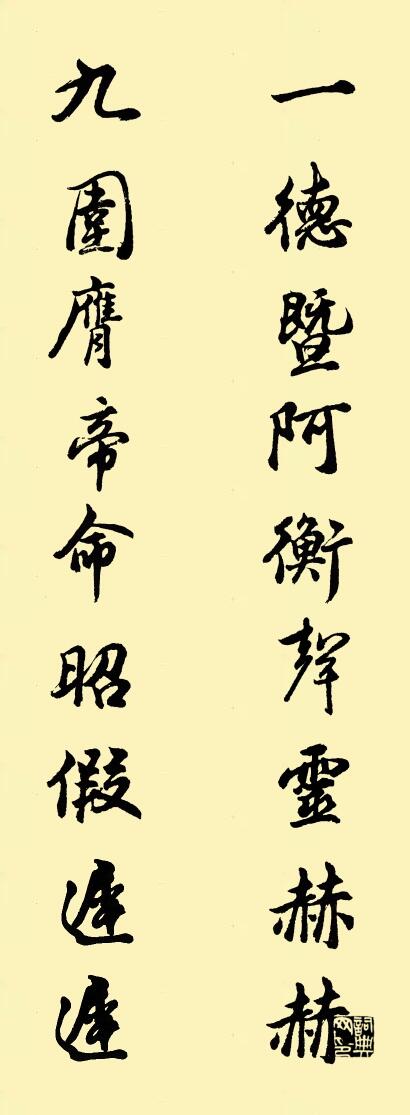 一德暨阿衡聲靈赫赫
九圍膺帝命昭假遲遲